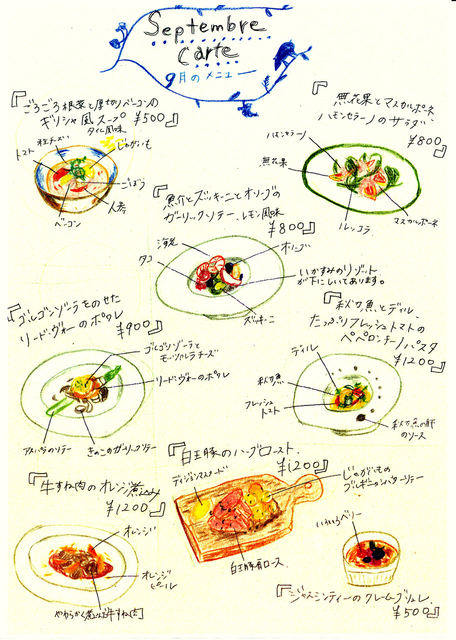 Septembre
Carte
9月のメニュー
『ごろごろ根菜と厚切りベーコンの
ギリシャ風スープ ¥500』
タイム風味
粒チーズ
じゃがいも
トマト
ごぼう
人参
ベーコン
『無花果とマスカルポーネ、
ハモンセラーノのサラダ
¥800』
ハモンセラーノ
無花果
ルッコラ
マスカルポーネ
『魚介とズッキーニとオリーブの
ガーリックソテー、レモン風味
¥800』
海老
タコ
オリーブ
いかすみのリゾット
が下にしいてあります。
ズッキーニ
『ゴルゴンゾーラをのせた
リードヴォーのポワレ
¥900』
ゴルゴンゾーラと
モッツァレラチーズ
リードヴォーのポワレ
アスパラのソテー
きのこのガーリックソテー
『秋刀魚とディル、
たっぷりフレッシュトマトの
ペペロンチーノパスタ
¥1200』
ディル
秋刀魚
フレッシュ
トマト
秋刀魚の肝
のソース
『牛すね肉のオレンジ煮込み
¥1200』
オレンジ
オレンジ
ピール
やわらかく煮込んだ牛すね肉
『白王豚のハーブロースト
¥1200』
ディジョンマスタード
じゃがいもの
ブルギニョンバターソテー
白王豚肩ロース
いろいろベリー
『ジャスミンティーのクレームブリュレ
¥500』